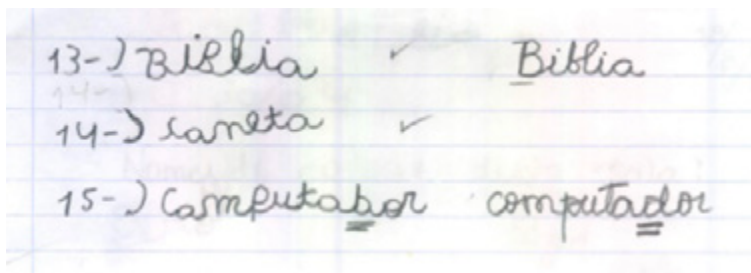 13-) Biblia ✓ Biblia
14-) caneta ✓
15-) Computabor computador